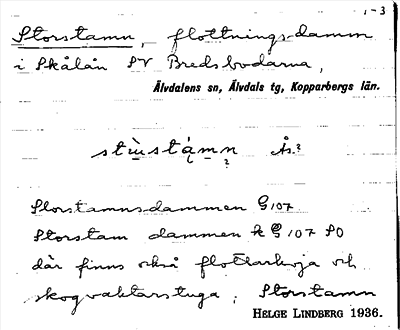 1-3
Storstamn, flottningsdamm
i Skålån SV Bredsbodarna,
Älvdalens sn, Älvdals tg, Kopparbergs län.
Ås.?
Storstamnsdammen G 107
Storstam dammen k G 107 SO
där finns också flottarkoja och
skogvaktarstuga; Storstamn
HELGE LINDBERG 1936.